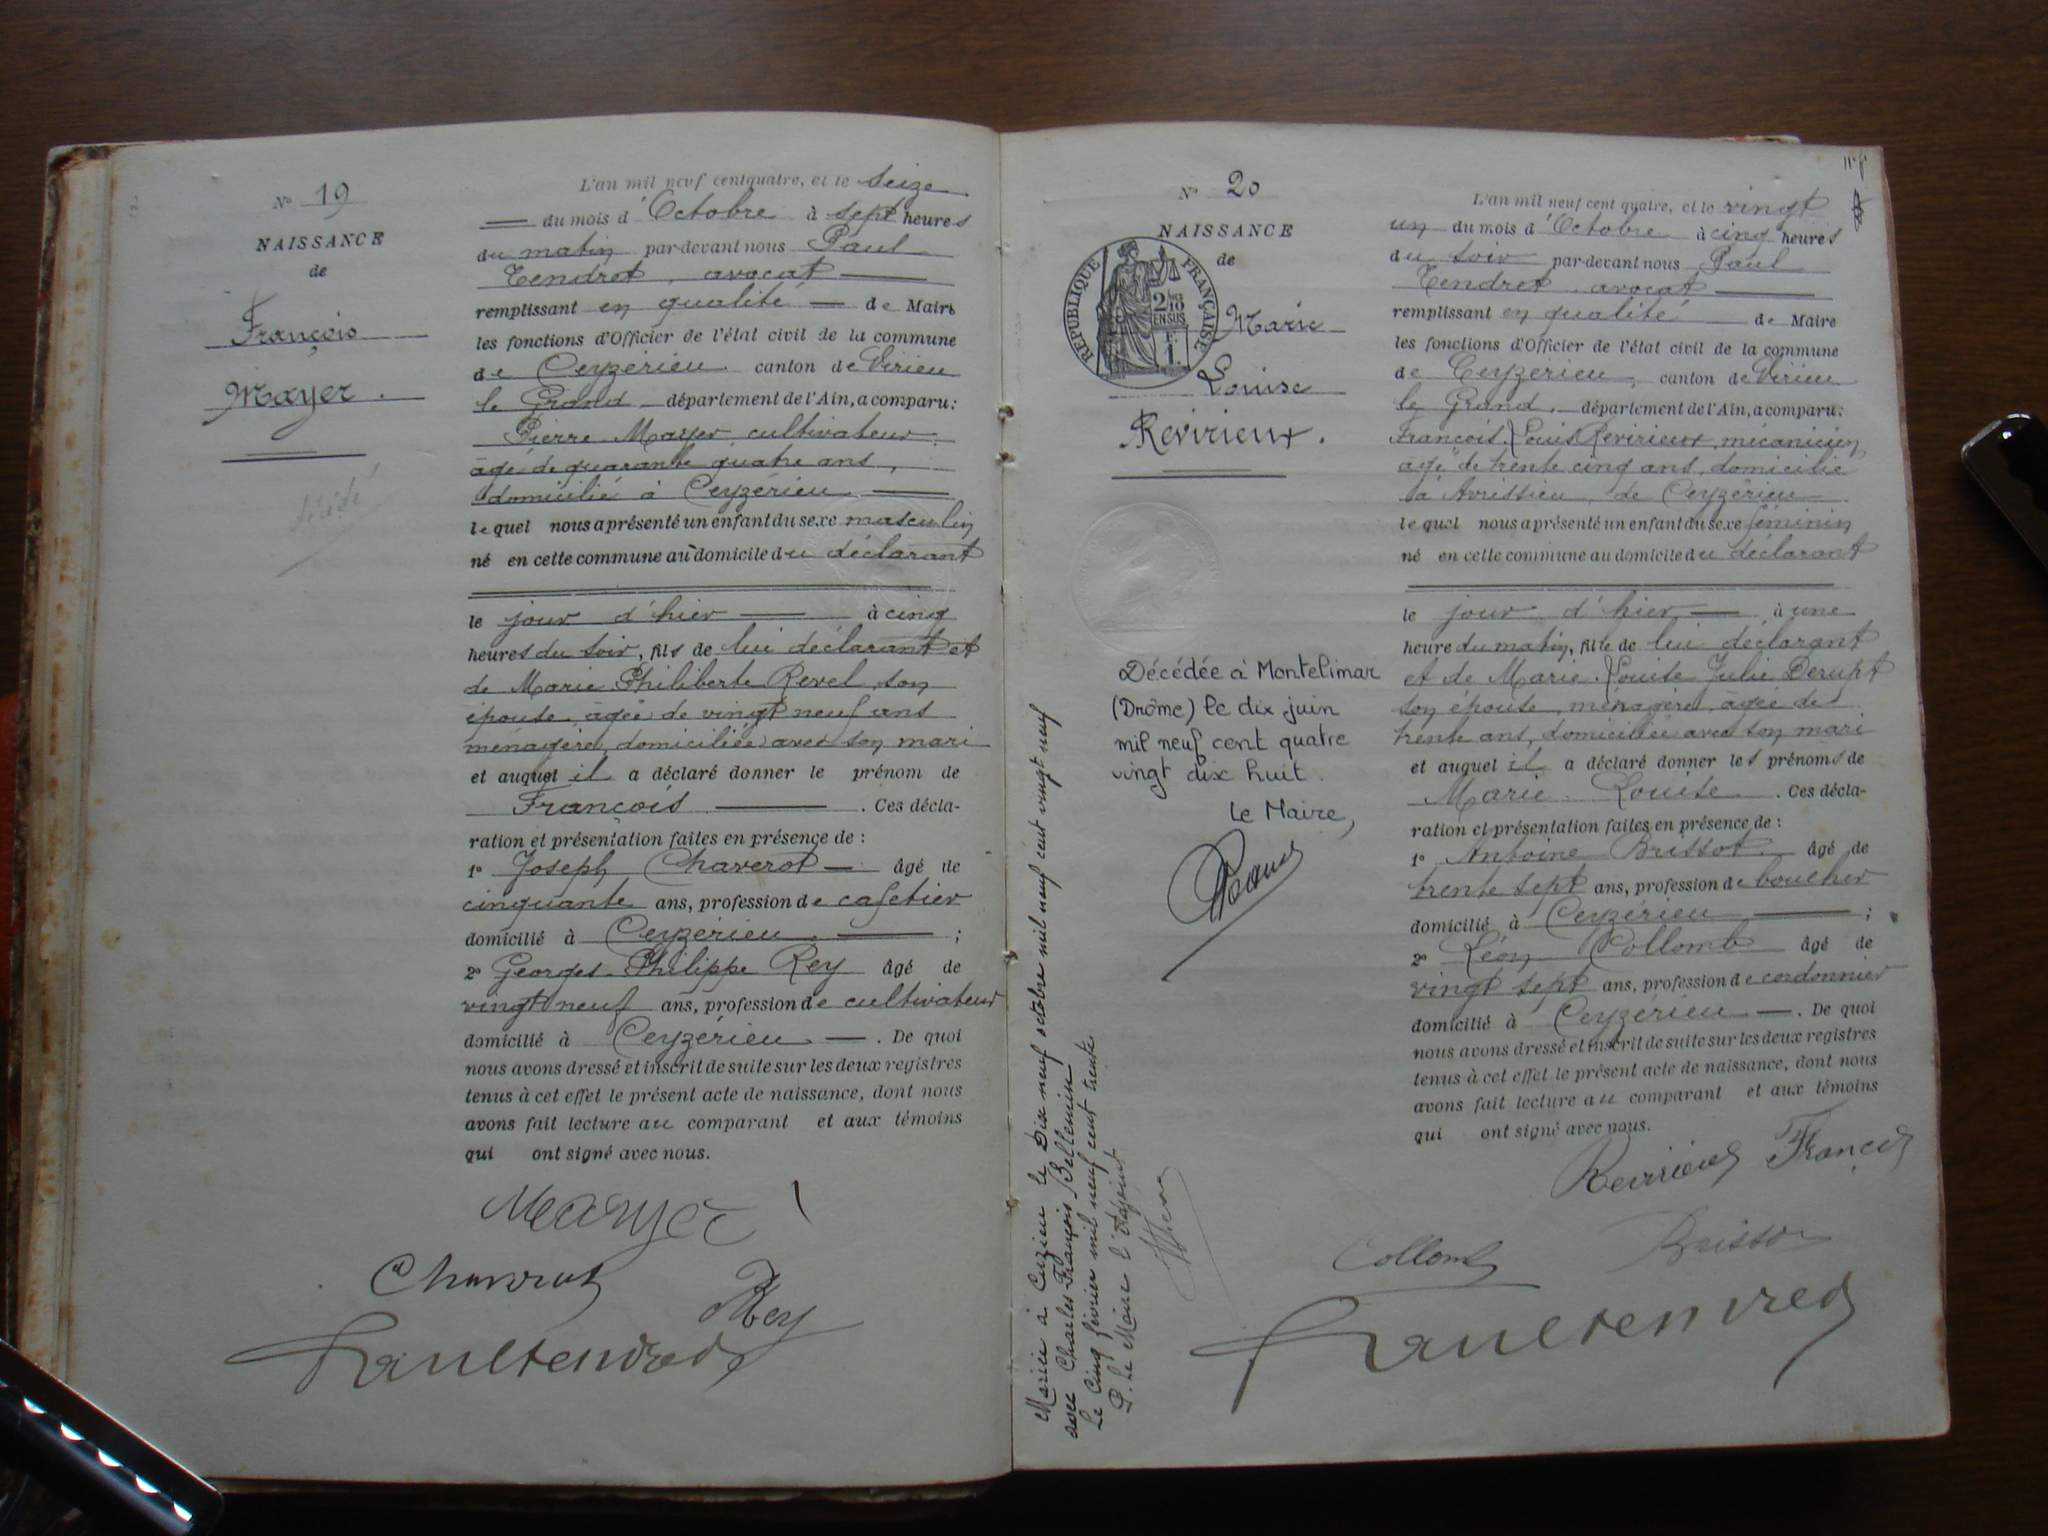 Nº 19
NAISSANCE
de
François
Mayer.
L'an mil neuf cent quatre, et le seize
du mois d'Octobre à sept heures
du matin par-devant nous Paul
Tendret, avocat
remplissant en qualité de Maire
les fonctions d'Officier de l'état civil de la commune
de Ceyzérieu canton de Virieu
le Grand département de l'Ain, a comparu:
Pierre Mayer, cultivateur,
âgé de quarante quatre ans,
domicilié à Ceyzérieu
lequel nous a présenté un enfant du sexe masculin
né en cette commune au domicile du déclarant
le jour d'hier à cinq
heures du soir, fils de lui déclarant et
de Marie Philiberte Revel, son
épouse, âgée de vingt neuf ans
ménagère, domiciliée avec son mari
et auquel il a déclaré donner le prénom de
François. Ces décla-
ration et présentation faites en présence de :
1º Joseph Chaverot âgé de
cinquante ans, profession de cafetier
domicilié à Ceyzérieu ;
2º Georges Philippe Rey âgé de
vingt neuf ans, profession de cultivateur
domicilié à Ceyzérieu. De quoi
nous avons dressé et inscrit de suite sur les deux registres
tenus à cet effet le présent acte de naissance, dont nous
avons fait lecture au comparant et aux témoins
qui ont signé avec nous.
Mayer
Chaverot
Rey
Paul Tendret
Nº 20
NAISSANCE
de
RÉPUBLIQUE FRANÇAISE
2/10 EN SUS
F. 1.
Marie
Louise
Révirieux.
Décédée à Montelimar
(Drôme) le dix juin
mil neuf cent quatre
vingt dix huit.
Le Maire,
Mariée à Cuzieu le Dix neuf octobre mil neuf cent vingt neuf
avec Charles François Bellemin
Le Cinq février mil neuf cent trente
P. Le Maire l'Adjoint
L'an mil neuf cent quatre, et le vingt
un du mois d'Octobre à cinq heures
du soir par-devant nous Paul
Tendret, avocat
remplissant en qualité de Maire
les fonctions d'Officier de l'état civil de la commune
de Ceyzérieu, canton de Virieu
le Grand, département de l'Ain, a comparu:
François Louis Révirieux, mécanicien
âgé de trente cinq ans, domicilié
à Avrissieu, de Ceyzérieu
lequel nous a présenté un enfant du sexe féminin
né en cette commune au domicile du déclarant
le jour d'hier à une
heure du matin, fille de lui déclarant
et de Marie Louise Julie Derupt
son épouse, ménagère, âgée de
trente ans, domiciliée avec son mari
et auquel il a déclaré donner les prénoms de
Marie Louise. Ces décla-
ration et présentation faites en présence de :
1º Antoine Brissot âgé de
trente sept ans, profession de boucher
domicilié à Ceyzérieu ;
2º Léon Collomb âgé de
vingt sept ans, profession de cordonnier
domicilié à Ceyzérieu. De quoi
nous avons dressé et inscrit de suite sur les deux registres
tenus à cet effet le présent acte de naissance, dont nous
avons fait lecture au comparant et aux témoins
qui ont signé avec nous.
Révirieux François
Collomb Brissot
Paul Tendret